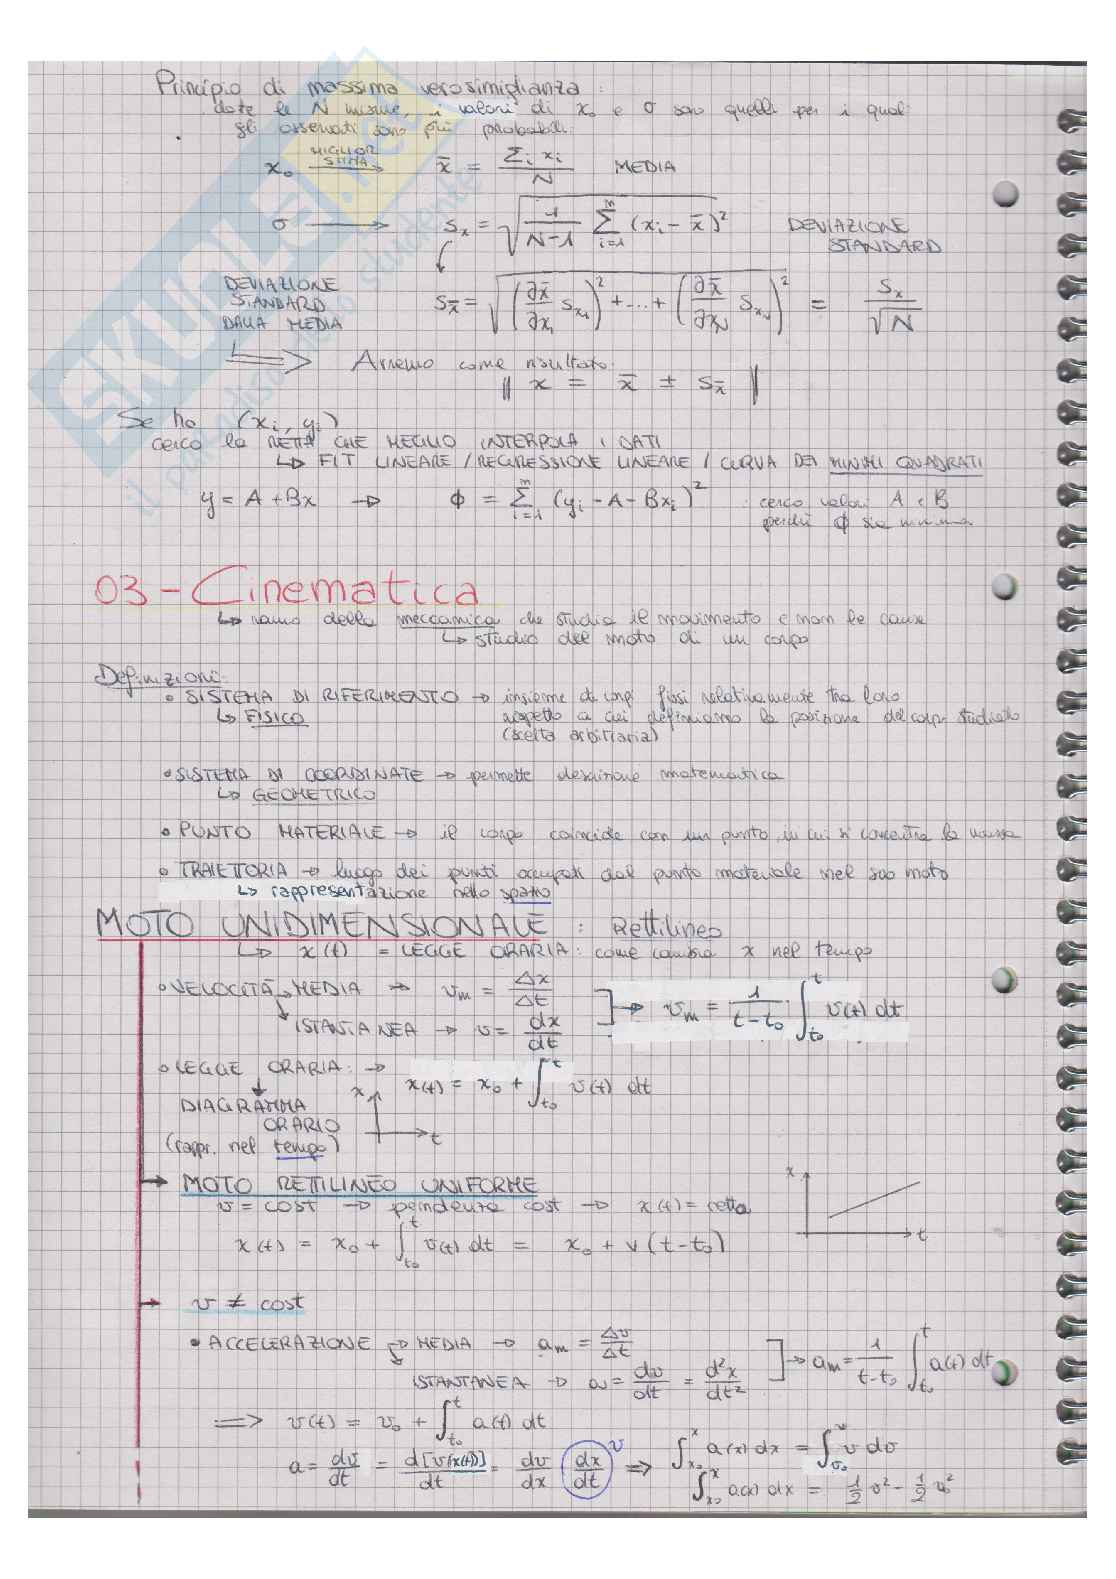 Principio di massima verosimiglianza :
date le N misure, i valori di x₀ e σ sono quelli per i quali
gli osservati sono più probabili.
x₀ MIGLIOR STIMA → x̄ = Σᵢ xᵢ / N MEDIA
σ → Sₓ = √( 1/(N-1) Σᵢ₌₁ⁿ (xᵢ - x̄)² ) DEVIAZIONE STANDARD
DEVIAZIONE STANDARD DALLA MEDIA S_x̄ = √( (∂x̄/∂x₁ S_x₁)² + ... + (∂x̄/∂x_N S_x_N)² ) = Sₓ/√N
⇒ Avremo come risultato:
|| x = x̄ ± S_x̄ ||
Se ho (xᵢ, yᵢ)
cerco la RETTA CHE MEGLIO INTERPOLA I DATI
↳ FIT LINEARE / REGRESSIONE LINEARE / CURVA DEI MINIMI QUADRATI
y = A + Bx → ϕ = Σᵢ₌₁ⁿ (yᵢ - A - Bxᵢ)² : cerco valori A e B
perché ϕ sia minima
03 - Cinematica
↳ ramo della meccanica che studia il movimento e non le cause
↳ studio del moto di un corpo
Definizioni:
• SISTEMA DI RIFERIMENTO → insieme di corpi fissi relativamente tra loro
↳ FISICO rispetto a cui definiamo la posizione del corpo studiato
(scelta arbitraria)
• SISTEMA DI COORDINATE → permette descrizione matematica
↳ GEOMETRICO
• PUNTO MATERIALE → il corpo coincide con un punto in cui si concentra la massa
• TRAIETTORIA → luogo dei punti occupati dal punto materiale nel suo moto
↳ rappresentazione nello spazio
MOTO UNIDIMENSIONALE : Rettilineo
↳ x(t) = LEGGE ORARIA: come cambia x nel tempo
• VELOCITÀ → MEDIA → vₘ = Δx/Δt
↘ ISTANTANEA → v = dx/dt ] → vₘ = 1/(t-t₀) ∫ₜ₀ᵗ v(t) dt
• LEGGE ORARIA: → x(t) = x₀ + ∫ₜ₀ᵗ v(t) dt
↓
DIAGRAMMA x
ORARIO t
(rappr. nel tempo)
→ MOTO RETTILINEO UNIFORME x
v = COST → pendenza cost → x(t) = retta
x(t) = x₀ + ∫ₜ₀ᵗ v(t) dt = x₀ + v(t-t₀) t
→ v ≠ cost
• ACCELERAZIONE → MEDIA → aₘ = Δv/Δt
↘ ISTANTANEA → a = dv/dt = d²x/dt² ] → aₘ = 1/(t-t₀) ∫ₜ₀ᵗ a(t) dt
⇒ v(t) = v₀ + ∫ₜ₀ᵗ a(t) dt
a = dv/dt = d[v(x(t))]/dt = dv/dx (dx/dt) v ⇒ ∫ₓ₀ˣ a(x) dx = ∫ᵥ₀ᵛ v dv
∫ₓ₀ˣ a(x) dx = ½ v² - ½ v₀²
SKUOLA.net
il paradiso dello studente